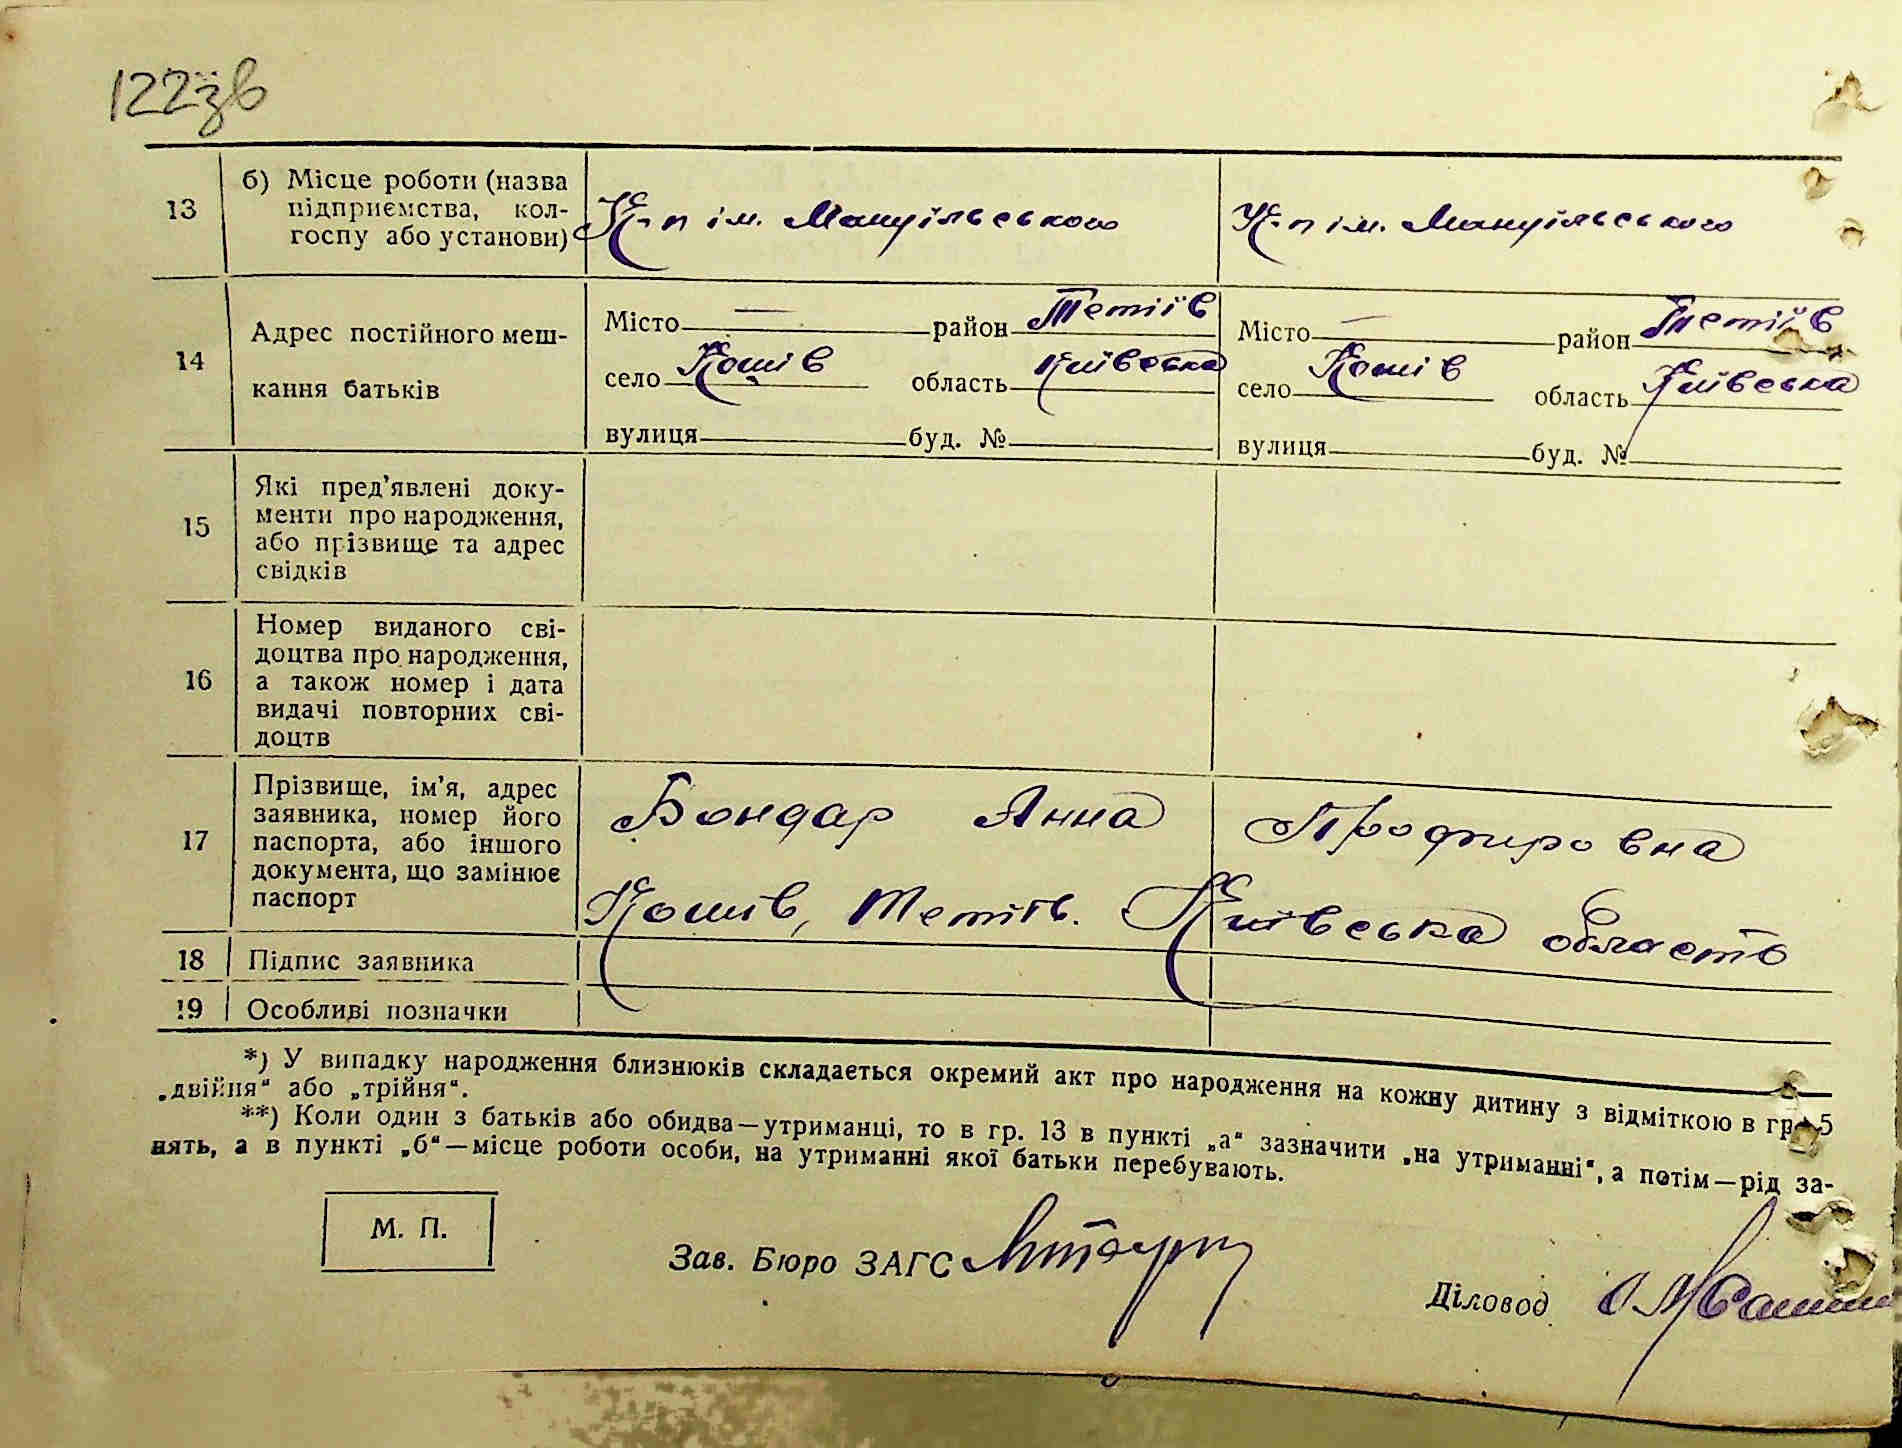 122зв
13
б) Місце роботи (назва
підприємства, кол-
госпу або установи)
К-п ім. Мануїльського
К-п ім. Мануїльського
14
Адрес постійного меш-
кання батьків
Місто — район Тетіїв
село Кошів область Київська
вулиця буд. №
Місто — район Тетіїв
село Кошів область Київська
вулиця буд. №
15
Які пред'явлені доку-
менти про народження,
або прізвище та адрес
свідків
16
Номер виданого сві-
доцтва про народження,
а також номер і дата
видачі повторних сві-
доцтв
17
Прізвище, ім'я, адрес
заявника, номер його
паспорта, або іншого
документа, що замінює
паспорт
Бондар Анна Профировна
Кошів, Тетіїв. Київська область
18 Підпис заявника
19 Особливі позначки
*) У випадку народження близнюків складається окремий акт про народження на кожну дитину з відміткою в гр. 5
„двійня" або „трійня".
**) Коли один з батьків або обидва—утриманці, то в гр. 13 в пункті „а" зазначити „на утриманні", а потім—рід за-
нять, а в пункті „б"—місце роботи особи, на утриманні якої батьки перебувають.
М. П.
Зав. Бюро ЗАГС
Діловод